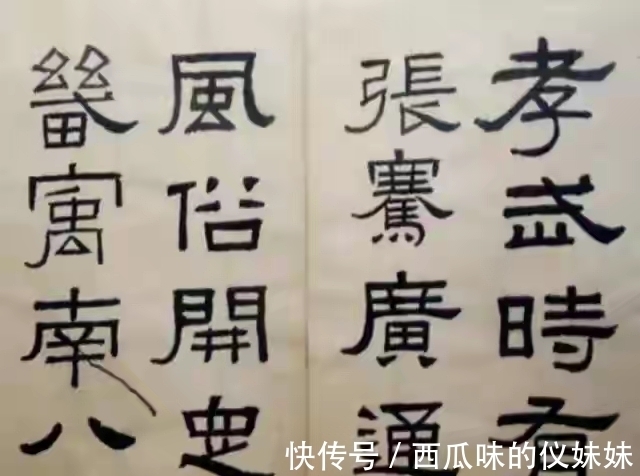 孝武時有
張騫廣通
風俗開定
畿寓南八
快传号 / 西瓜味的仪妹妹